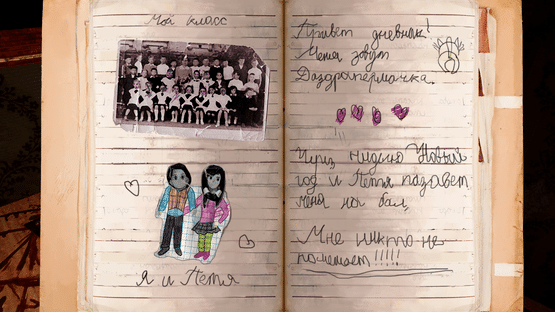 Мой класс
Я и Петя
Привет дневник!
Меня зовут
Даздрапермочка.
Через неделю Новый
год и Петя пазавёт
меня на бал,
Мне никто не
помешает!!!!!